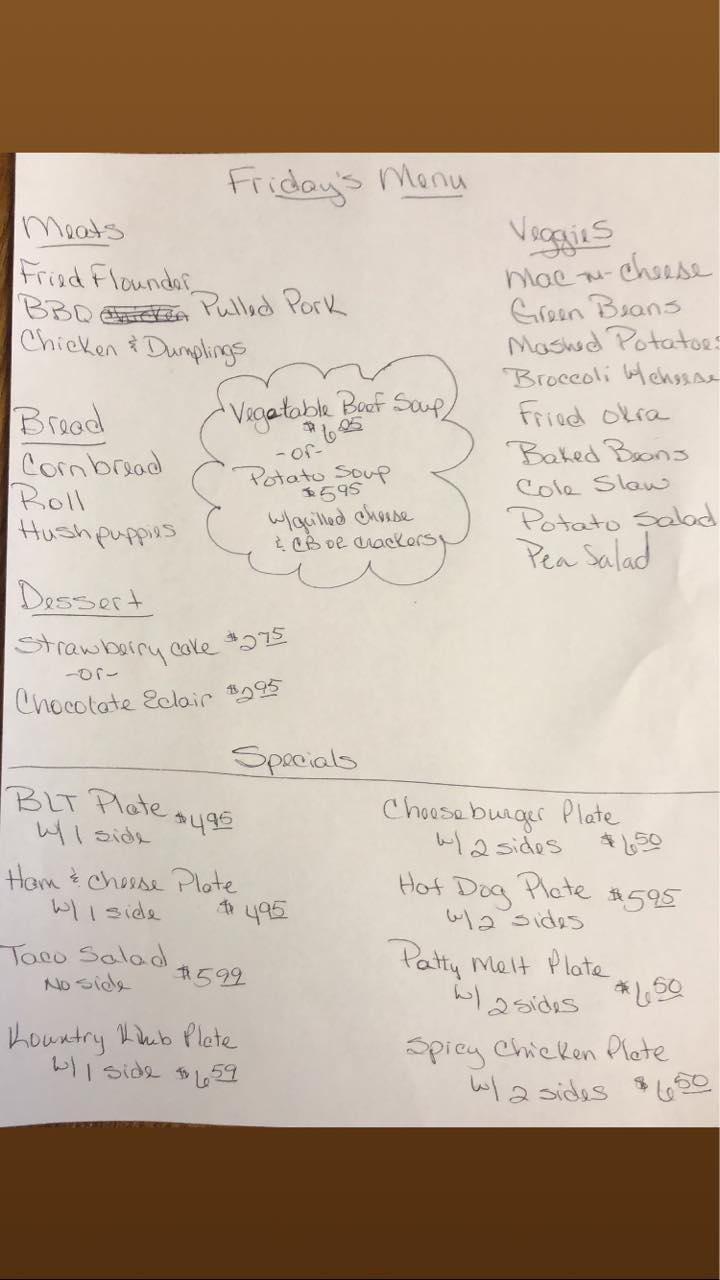 Friday's Menu
Meats
Fried Flounder
BBQ Pulled Pork
Chicken & Dumplings
Veggies
Mac-n-cheese
Green Beans
Mashed Potatoes
Broccoli w/cheese
Fried Okra
Baked Beans
Cole Slaw
Potato Salad
Pea Salad
Bread
Cornbread
Roll
Hushpuppies
Vegetable Beef Soup
-or-
Potato Soup
$5.95
w/grilled cheese
& CB or crackers
Dessert
Strawberry cake $2.75
-or-
Chocolate Eclair $2.95
Specials
BLT Plate $4.95
w/ 1 side
Ham & cheese Plate
w/ 1 side $4.95
Taco Salad $5.99
No side
Kountry Klub Plate
w/ 1 side $6.59
Cheeseburger Plate
w/ 2 sides $6.50
Hot Dog Plate $5.95
w/ 2 sides
Patty Melt Plate
w/ 2 sides $6.50
Spicy Chicken Plate
w/ 2 sides $6.50